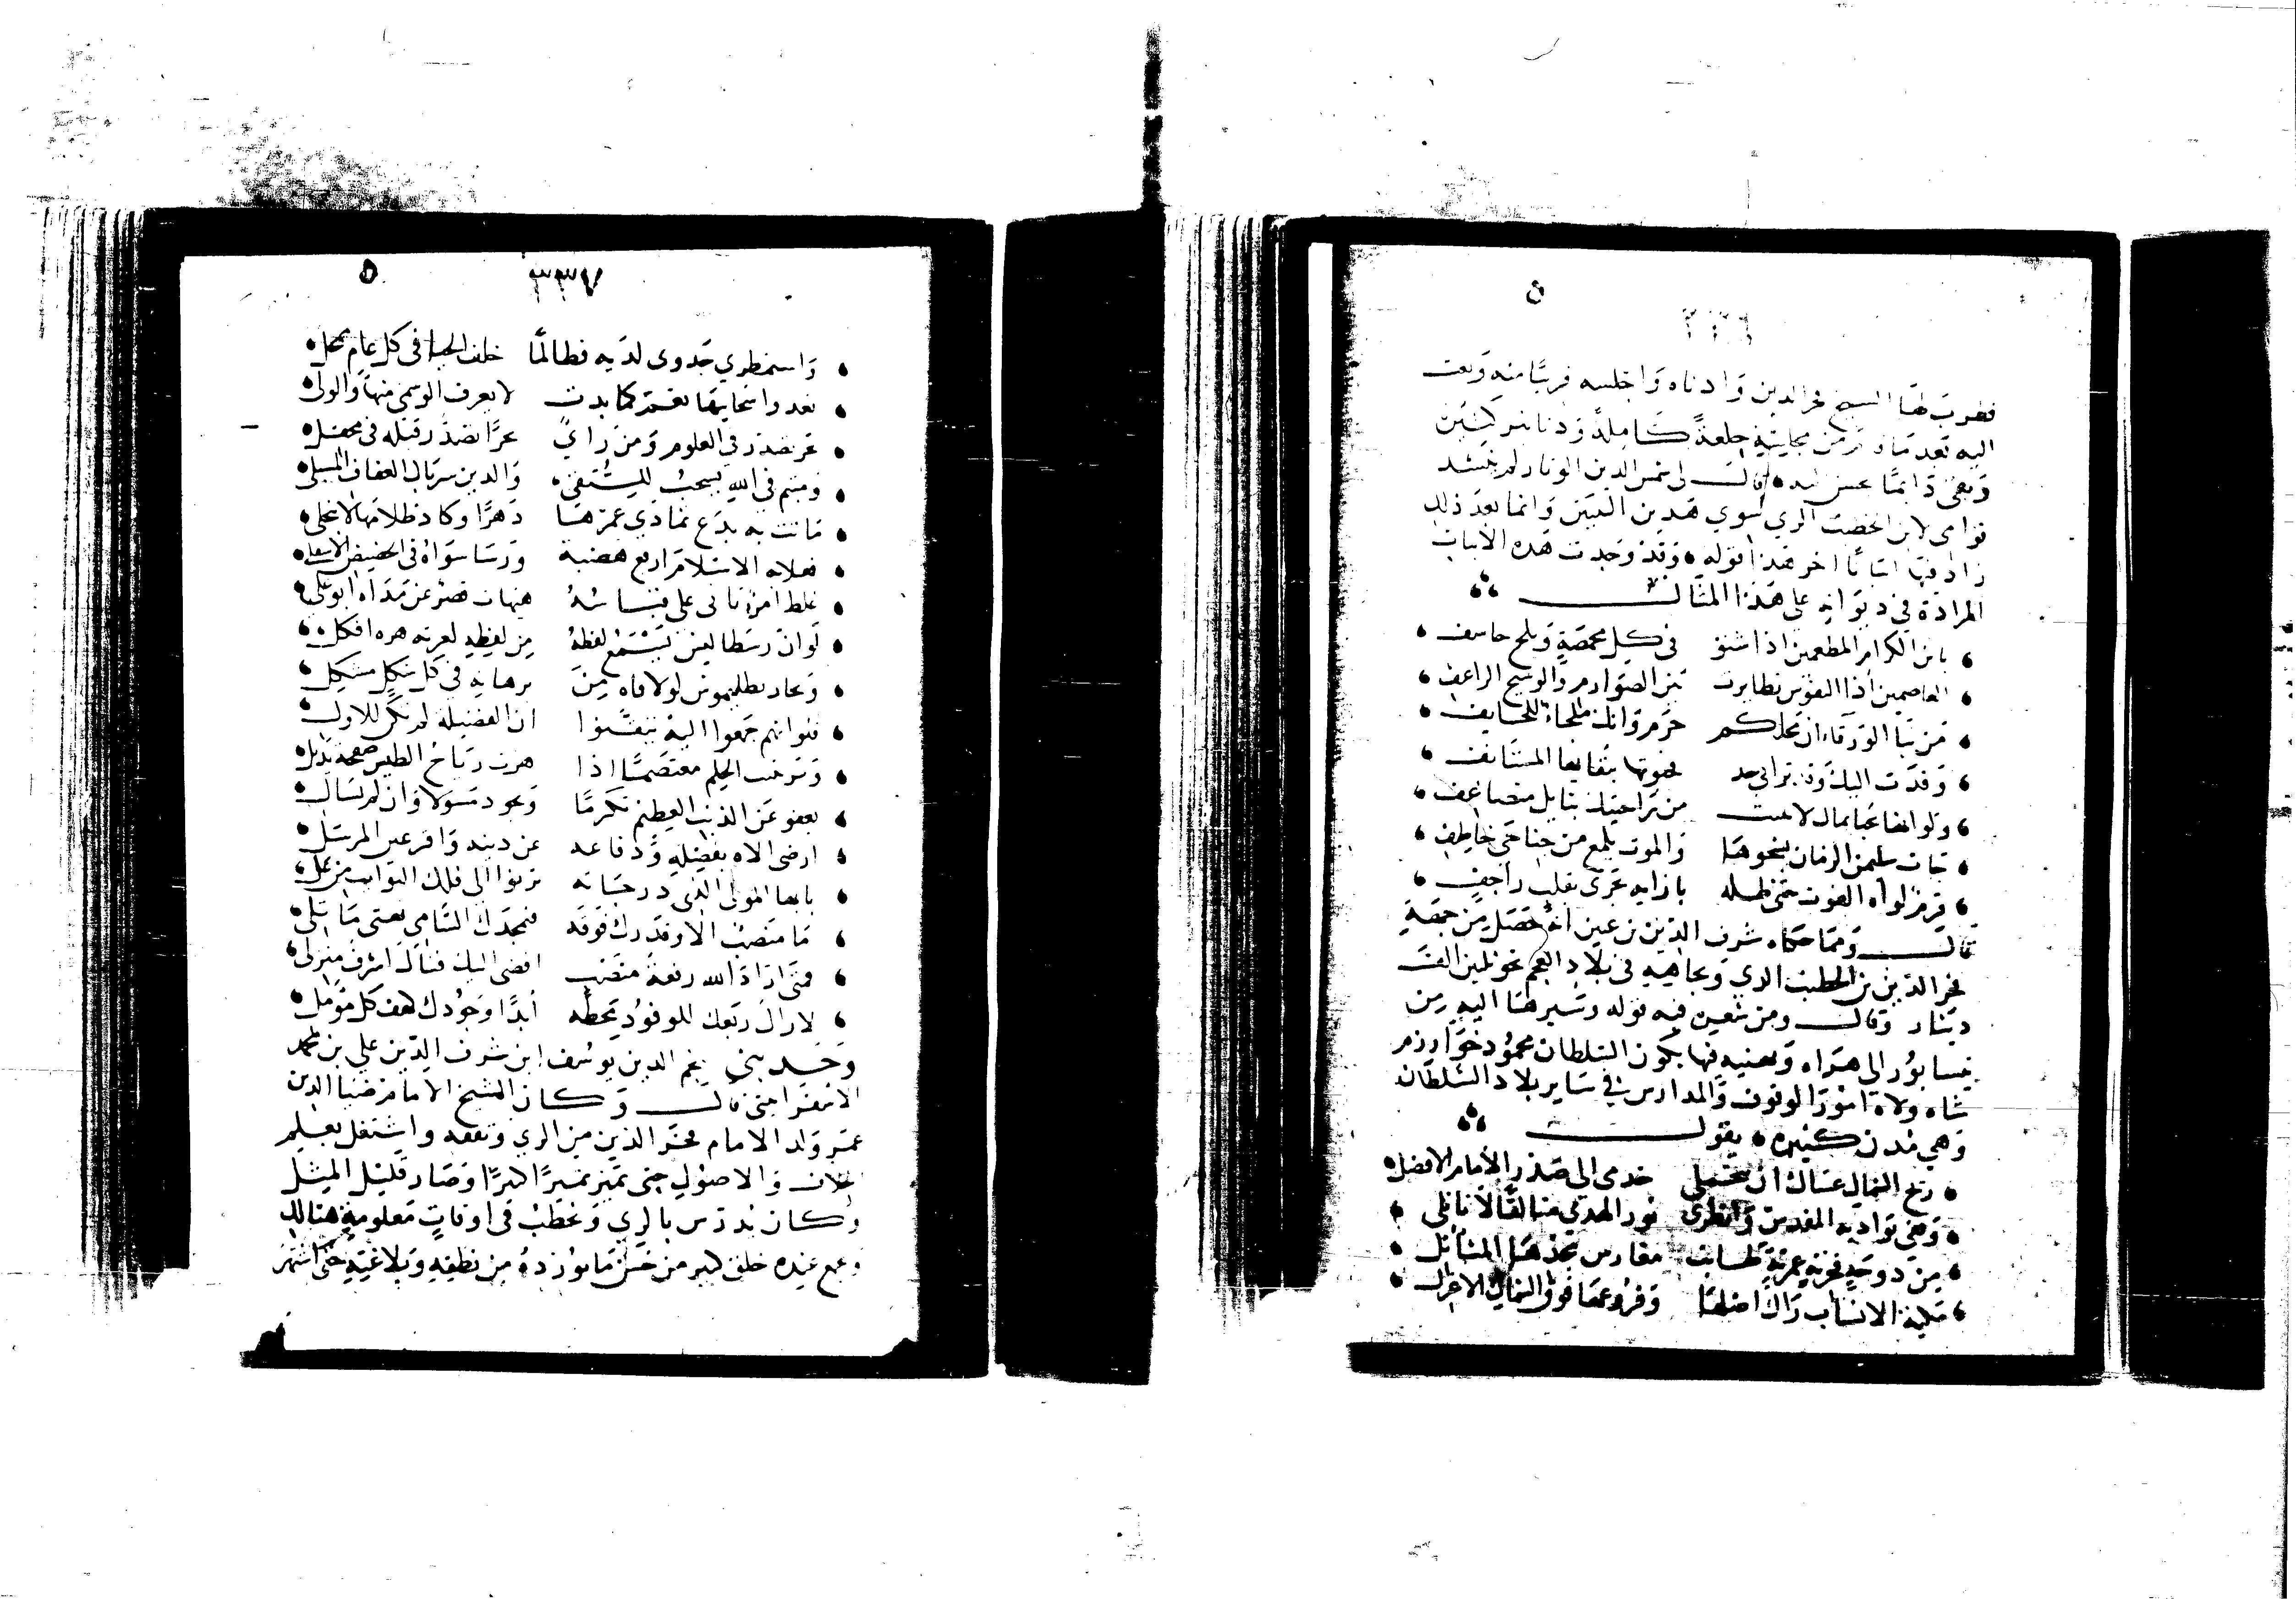 ٣٣٦
فطرب لها الشيخ فخر الدين وادناه واجلسه قريبا منه وبعث
اليه بعد ما قام من مجلسه خلعة كاملة ودنانير كثيرة
وبقي دائما محسن اليه قال لي شمس الدين الوتار لم ينشد
قوامى لابن الخطيب الري سوي هذين البيتين وانما بعد ذلك
زاد فيها ابياتا اخر هذا قوله وقد وجدت هذه الابيات
المزادة في ديوانه على هذا المثال
يا ابن الكرام المطعمين اذا شتوا في كل مخمصة وثلج خاشف
العاصمين اذا النفوس تطايرت بين الصوارم والوشيج الراعف
من نبا الورقاء ان محلكم حرم وانك ملجأ للخايف
وفدت اليك وقد تدانى حتفها فحبوتها ببقايها المستانف
ولو انها تحبا بمال لانثنت من راحتيك بنايل متضاعف
جات سليمن الزمان بشجوها والموت يلمع من جناحى خاطف
قرم لواه القوت حتى ظله بازايه يجرى بقلب راجف
قال ومما حكاه شرف الدين بن عنين انه حصل من جهة
فخر الدين بن الخطيب الري وبجاهه فى بلاد العجم نحو ثلثين الف
دينار وقال ومن شعره فيه قوله وسيرها اليه من
نيسابور الي هراه
شاه ولاه امور الوقوف والمدارس في ساير بلاد السلطان
وهي مدن كثيره يقول
ريح الشمال عساك ان تتحملي خدمى الى صدر الامام الافضل
وقفي بواديه المقدس وانظرى نور الهدى متالقا لا ياتلى
من دوحة فخرية عمرية طابت مغارس مجدها المتاثل
مكية الانساب زاك اصلها وفروعها فوق السماك الاعزل
٣٣٧
واستمطري جدوى يديه فطالما خلف الحيا فى كل عام ممحل
نعم سحايبها تعود كما بدت لا يعرف الوسمى منها والولى
بحر تصدر في العلوم ومن راي بحرا تصدر قبله فى محفل
ومشمر في الله يسحب للتقى والدين سربال العفاف المسبل
ماتت به بدع تمادي عمرها دهرا وكاد ظلامها لا ينجلى
فعلا به الاسلام ارفع هضبة ورسا سواه فى الحضيض الاسفل
غلط امرؤ بابى على قاسه هيهات قصر عن مداه ابو على
لو ان رسطاليس يسمع لفظة من لفظه لعرته هزه افكل
وبحار بطليموس لو لاقاه من برهانه فى كل شكل مشكل
فلو انهم جمعوا لديه تيقنوا ان الفضيلة لم تكن للاول
وتري به الحلم معتصما اذا هزت رياح الطيش
يعفو عن الذنب العظيم تكرما ويجود مسولا وان لم يسال
ارضى الاله بفضله ودفاعه عن دينه واقر عين المرسل
يا ايها المولى الذى درجاته ترنوا الى فلك الثوابت من عل
ما منصب الا وقدرك فوقه فبمجدك السامى يهنى ما يلى
فمتى اراد الله رفعة منصب افضى اليك فنال اشرف منزل
لا زال ربعك للوفود محطه ابدا وجودك كهف كل مومل
وحدثني نجم الدين يوسف ابن شرف الدين علي بن محمد
الاسفزاري قال وكان الشيخ الامام ضيا الدين
عمر والد الامام فخر الدين من الري وتفقه واشتغل بعلم
الخلاف والاصول حتى تميز تميزا كبيرا وصار قليل المثل
وكان يدرس بالري ويخطب في اوقات معلومة هنالك
ويجمع عنده خلق كثير من حسن ما يورده من نطقه وبلاغته حتى اشتهر